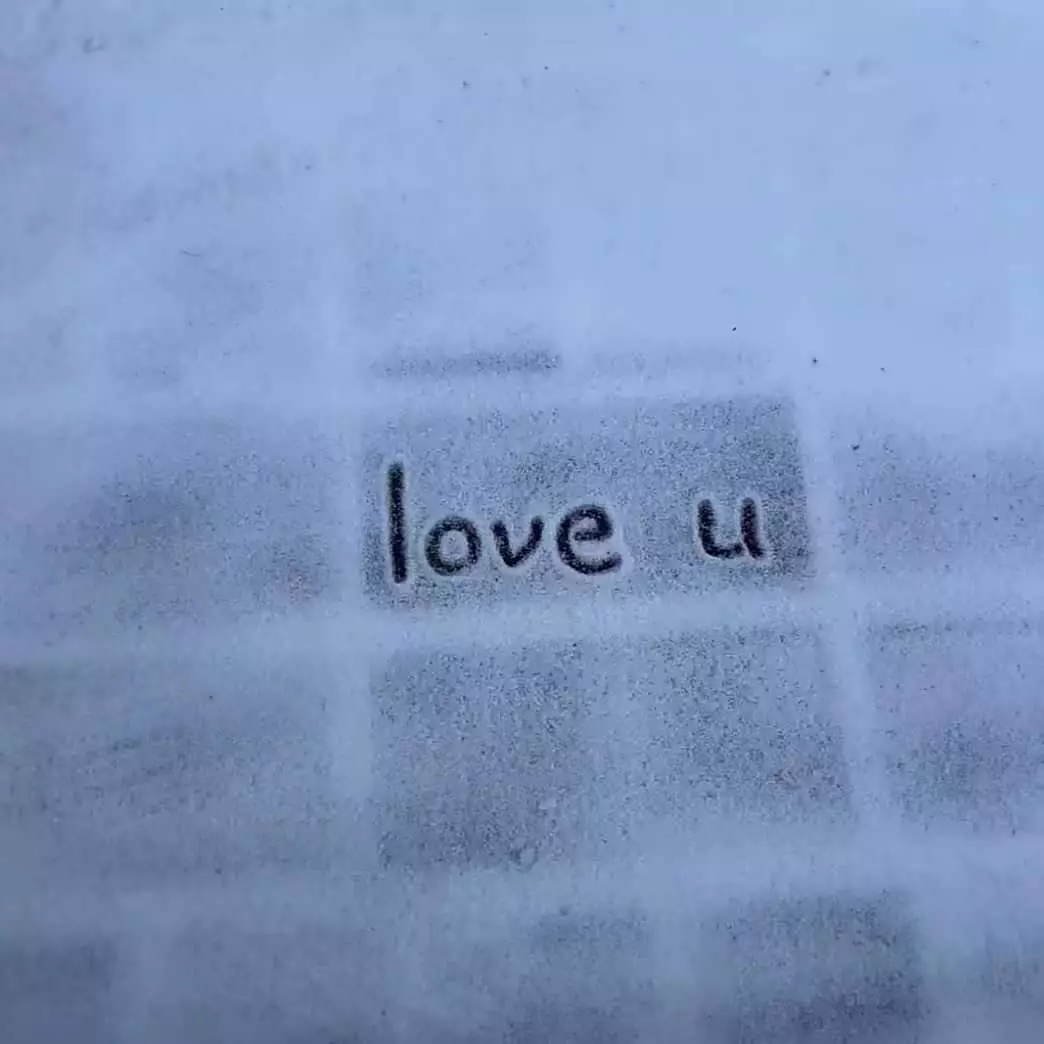 love u